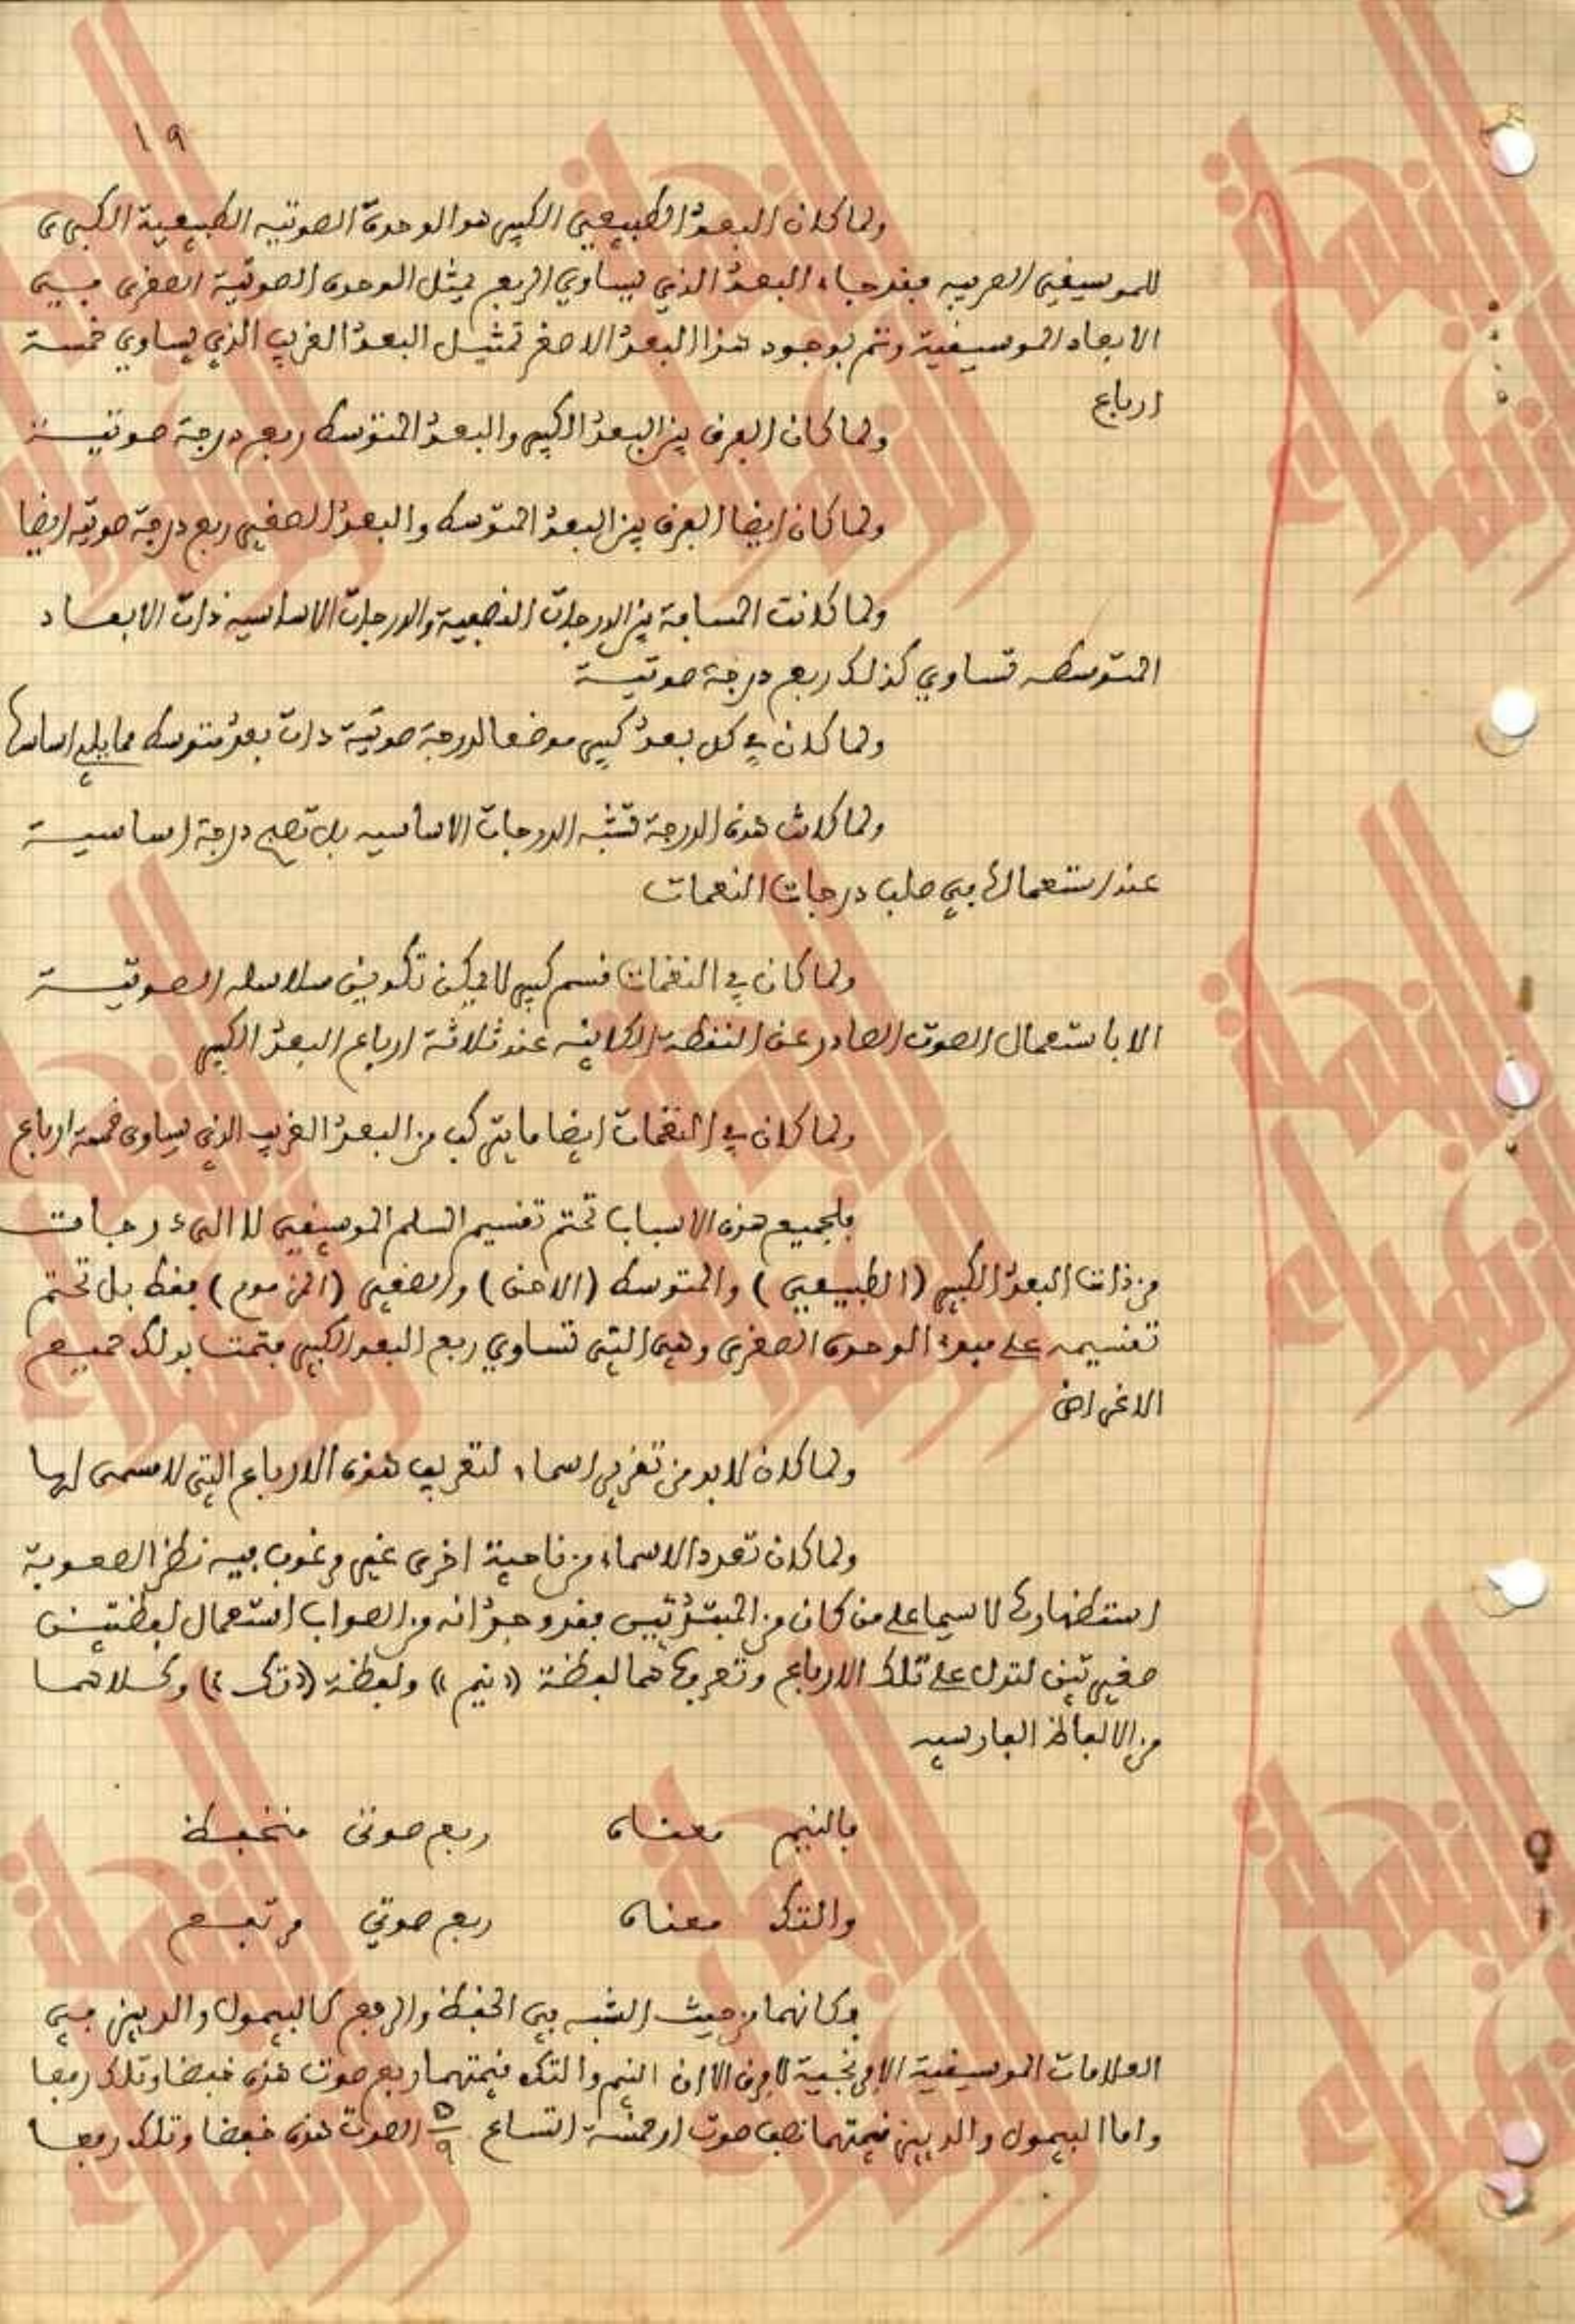 ١٩
ولما كان البعد الطبيعي الكبير هو الوحدة الصوتيه الطبيعية الكبرى
للموسيقى العربيه فقد جاء البعد الذي يساوي الربع يمثل الوحدة الصوتية الصغرى في
الابعاد الموسيقية وتم بوجود هذا البعد الاصغر تمثيل البعد الغريب الذي يساوي خمسة
ارباع
ولما كان الفرق بين البعد الكبير والبعد المتوسط ربع درجة صوتية
ولما كان ايضا الفرق بين البعد المتوسط والبعد الصغير ربع درجة صوتيه ايضا
ولما كانت المسافة بين الدرجات النصفية والدرجات الاساسيه ذات الابعاد
المتوسطه تساوي كذلك ربع درجة صوتية
ولما كان في كل بعد كبير موضعا لدرجة صوتية ذات بعد متوسط مما يلي اساسها
ولما كانت هذه الدرجة تشبه الدرجات الاساسيه بل تصبح درجة اساسية
عند استعمالها في صلب درجات النغمات
ولما كان في النغمات قسم كبير لا يمكن تكوين سلاسله الصوتية
الا باستعمال الصوت الصادر عن النقطة الكائنه عند ثلاثة ارباع البعد الكبير
ولما كان في النغمات ايضا ما يتركب من البعد الغريب الذي يساوي خمسة ارباع
فلجميع هذه الاسباب تحتم تقسيم السلم الموسيقي لا الى درجات
من ذات البعد الكبير (الطبيعي) والمتوسط (الاحن) والصغير (المزموم) فقط بل تحتم
تقسيمه على مبدء الوحدة الصغرى وهي التي تساوي ربع البعد الكبير فتمت بذلك جميع
الاغراض
ولما كان لا بد من تقرير اسماء لتعريف هذه الارباع التي لا مسمى لها
ولما كان تعدد الاسماء من ناحية اخرى غير مرغوب فيه نظرا لصعوبة
استظهارها لا سيما على من كان من المبتدئين فقد وجد انه من الصواب استعمال لفظتين
صغيرتين لتدل على تلك الارباع وتعرفها هما لفظة «نيم» ولفظة «تك» وكلاهما
من الالفاظ الفارسيه
فالنيم معناه ربع صوتي منخفظ
والتك معناه ربع صوتي مرتفع
وكانهما من حيث الشبه في الخفظ والرفع كالبيمول والدييز في
العلامات الموسيقية الافرنجية لا فرق الا ان النيم والتك قيمتهما ربع صوت هذه خفضا وتلك رفعا
واما البيمول والدييز قيمتهما نصف صوت او خمسة اتساع ٥/٩ الصوت هذه خفضا وتلك رفعا